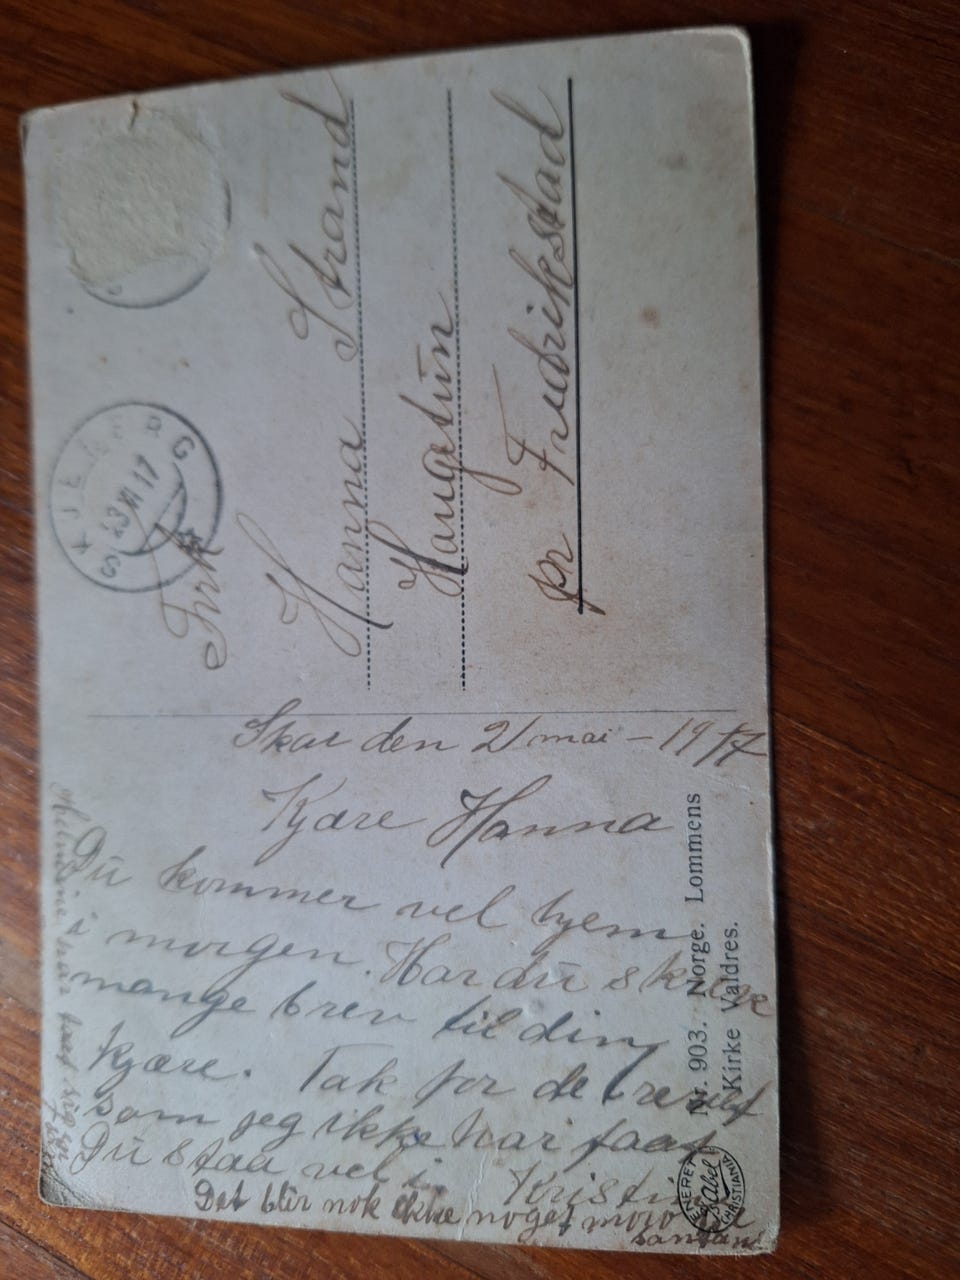 SKJEBERG
23 VI 17
Frk
Hanna Strand
Haugetun
pr Fredrikstad
Skar den 21 mai - 1917
Kjære Hanna
Du kommer vel hjem
i morgen. Har du skreve
mange brev til din
kjære. Tak for de brevet
som jeg ikke har faat
Du staa vel i.
Kristi
Det blir nok ikke noget moro
Nr. 903. Norge. Lommens
Kirke Valdres.
ENERET
Abel
CHRISTIANIA